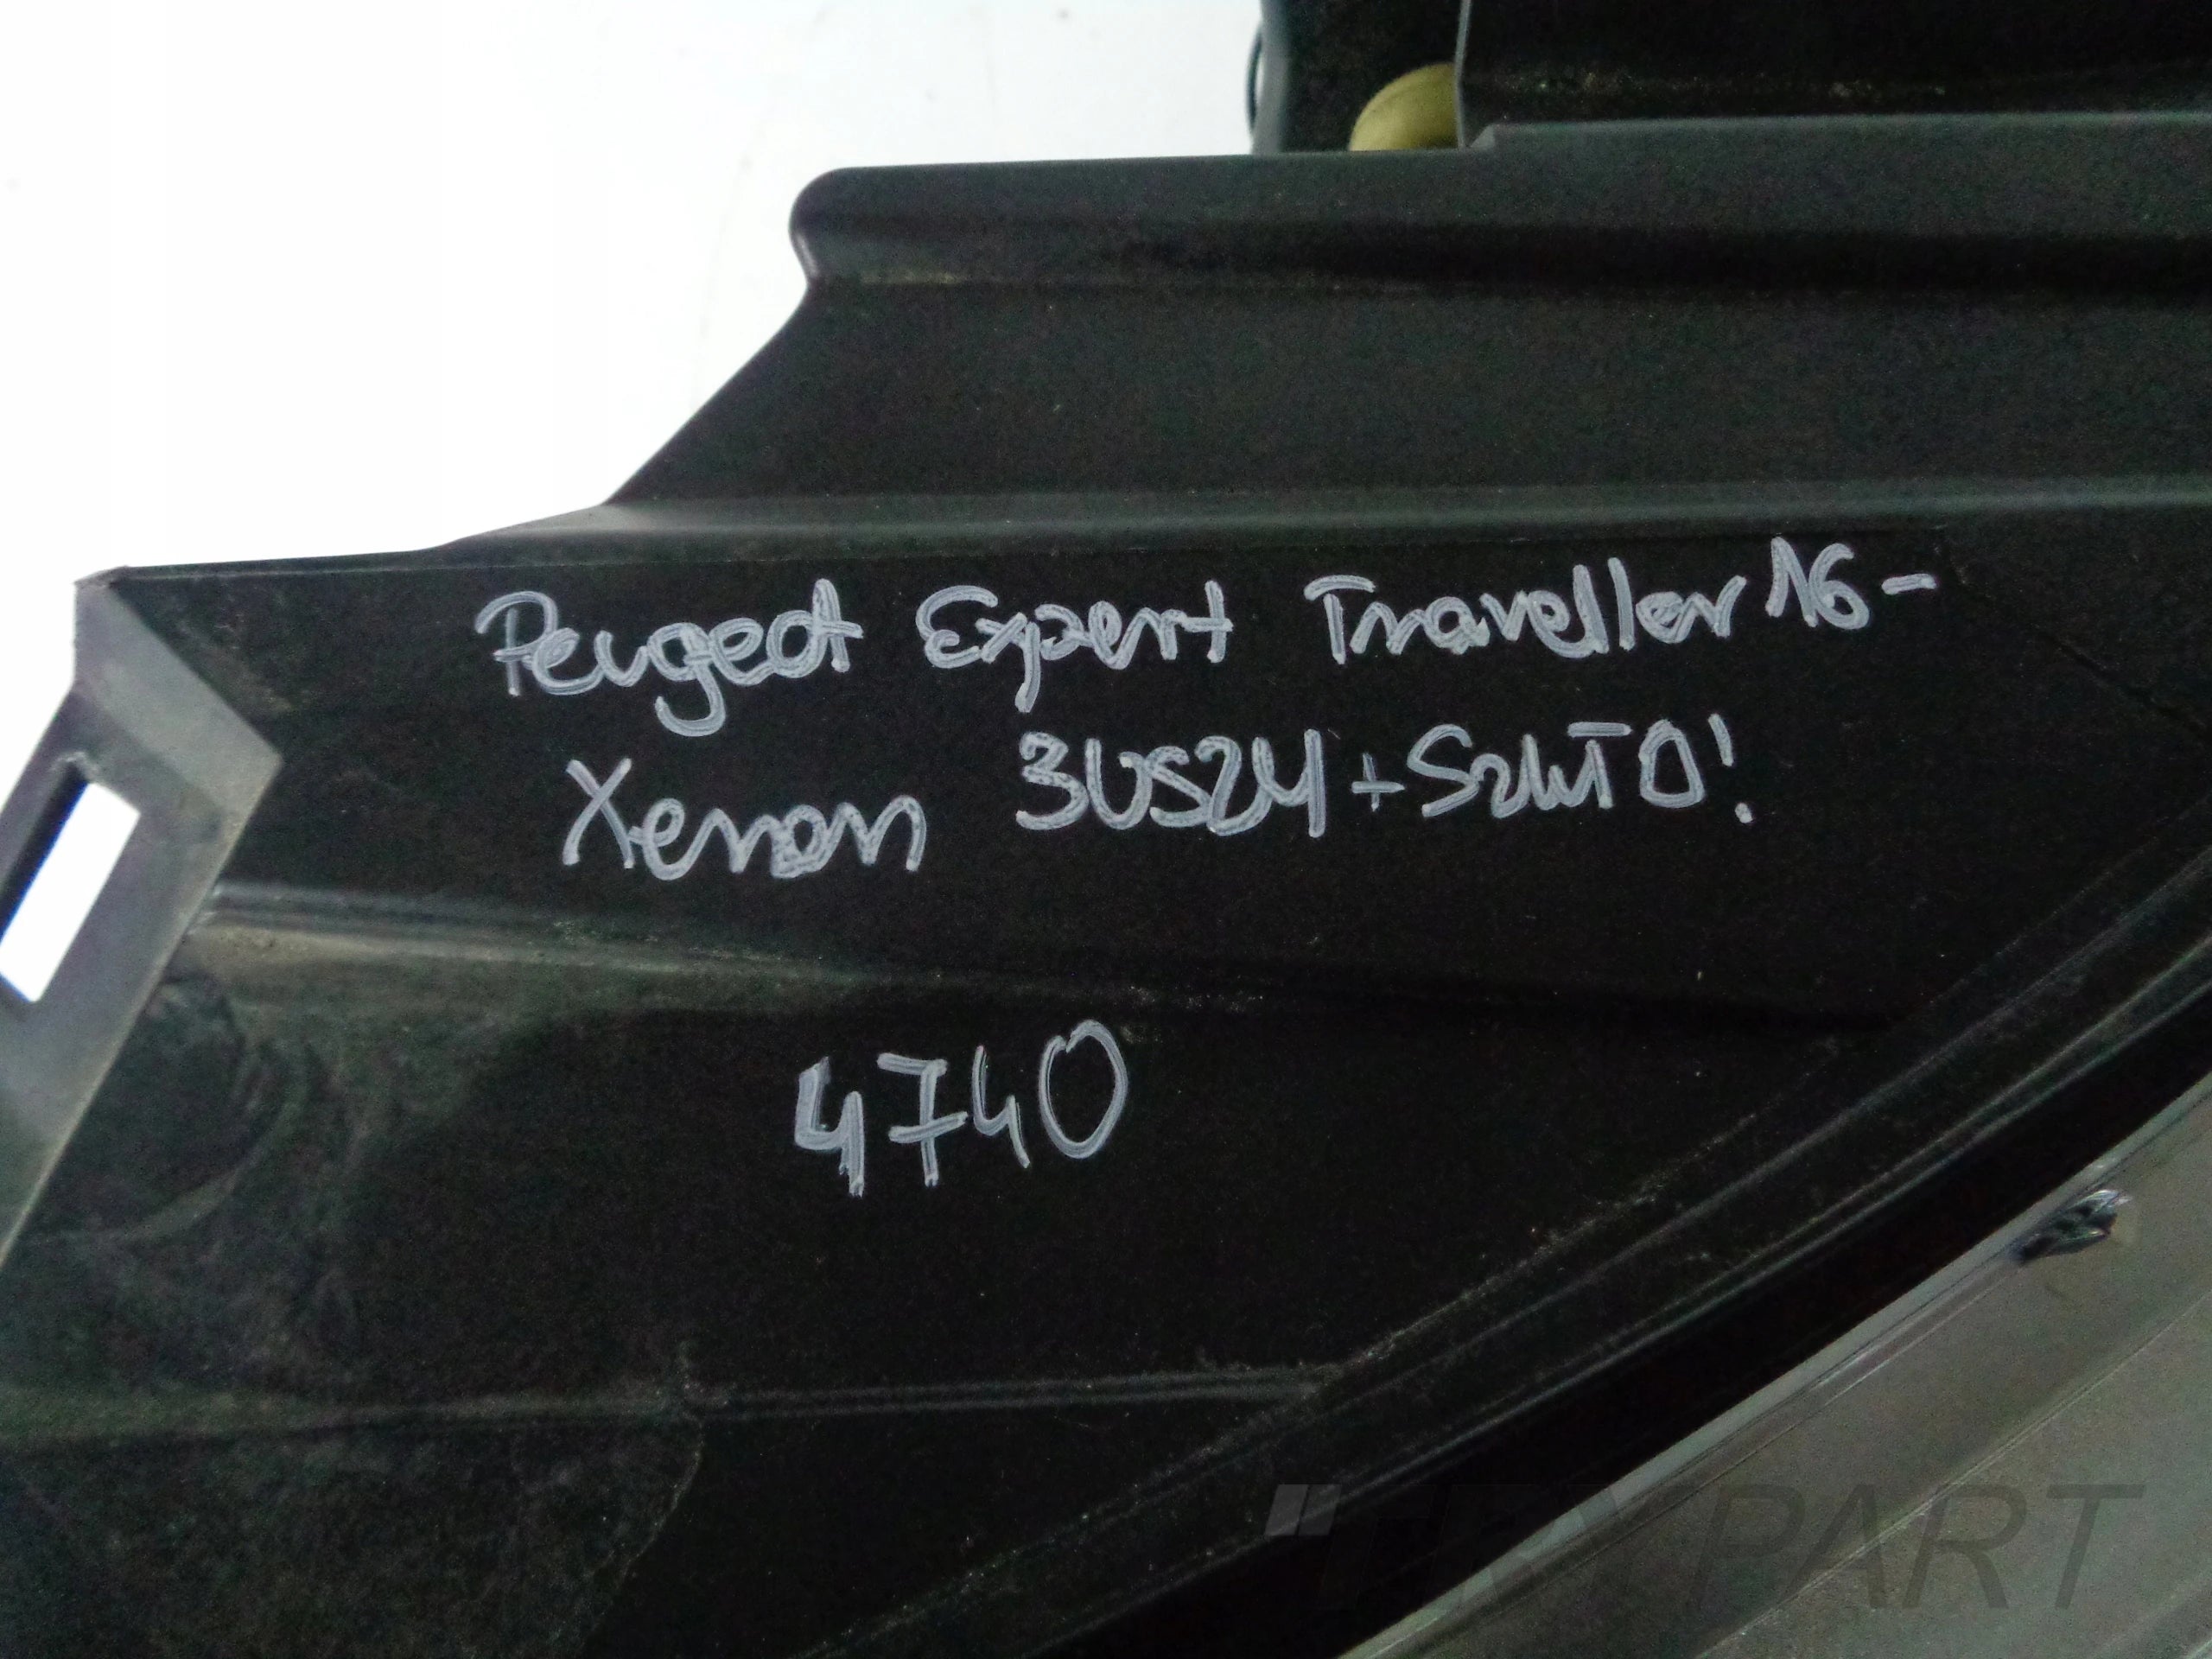 Peugeot Expert Traveller 16-
Xenon 3US24+SzkŁO!
4740
PART